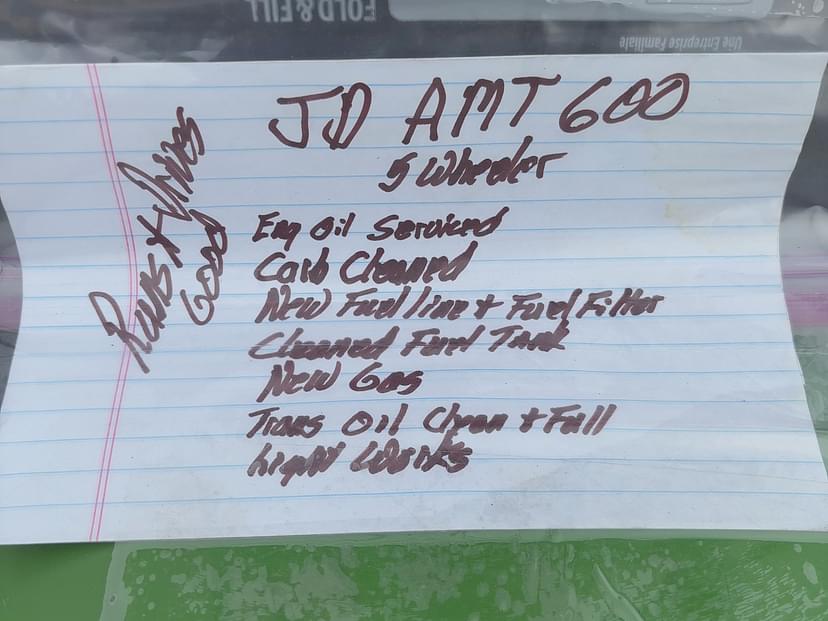 FOLD & FILL
Une Entreprise Familiale
JD AMT 600
5 Wheeler
Runs & Drives
GOOD
Eng Oil Serviced
Carb Cleaned
New Fuel line + Fuel Filter
Cleaned Fuel Tank
New Gas
Trans Oil Clean + Full
Light Works